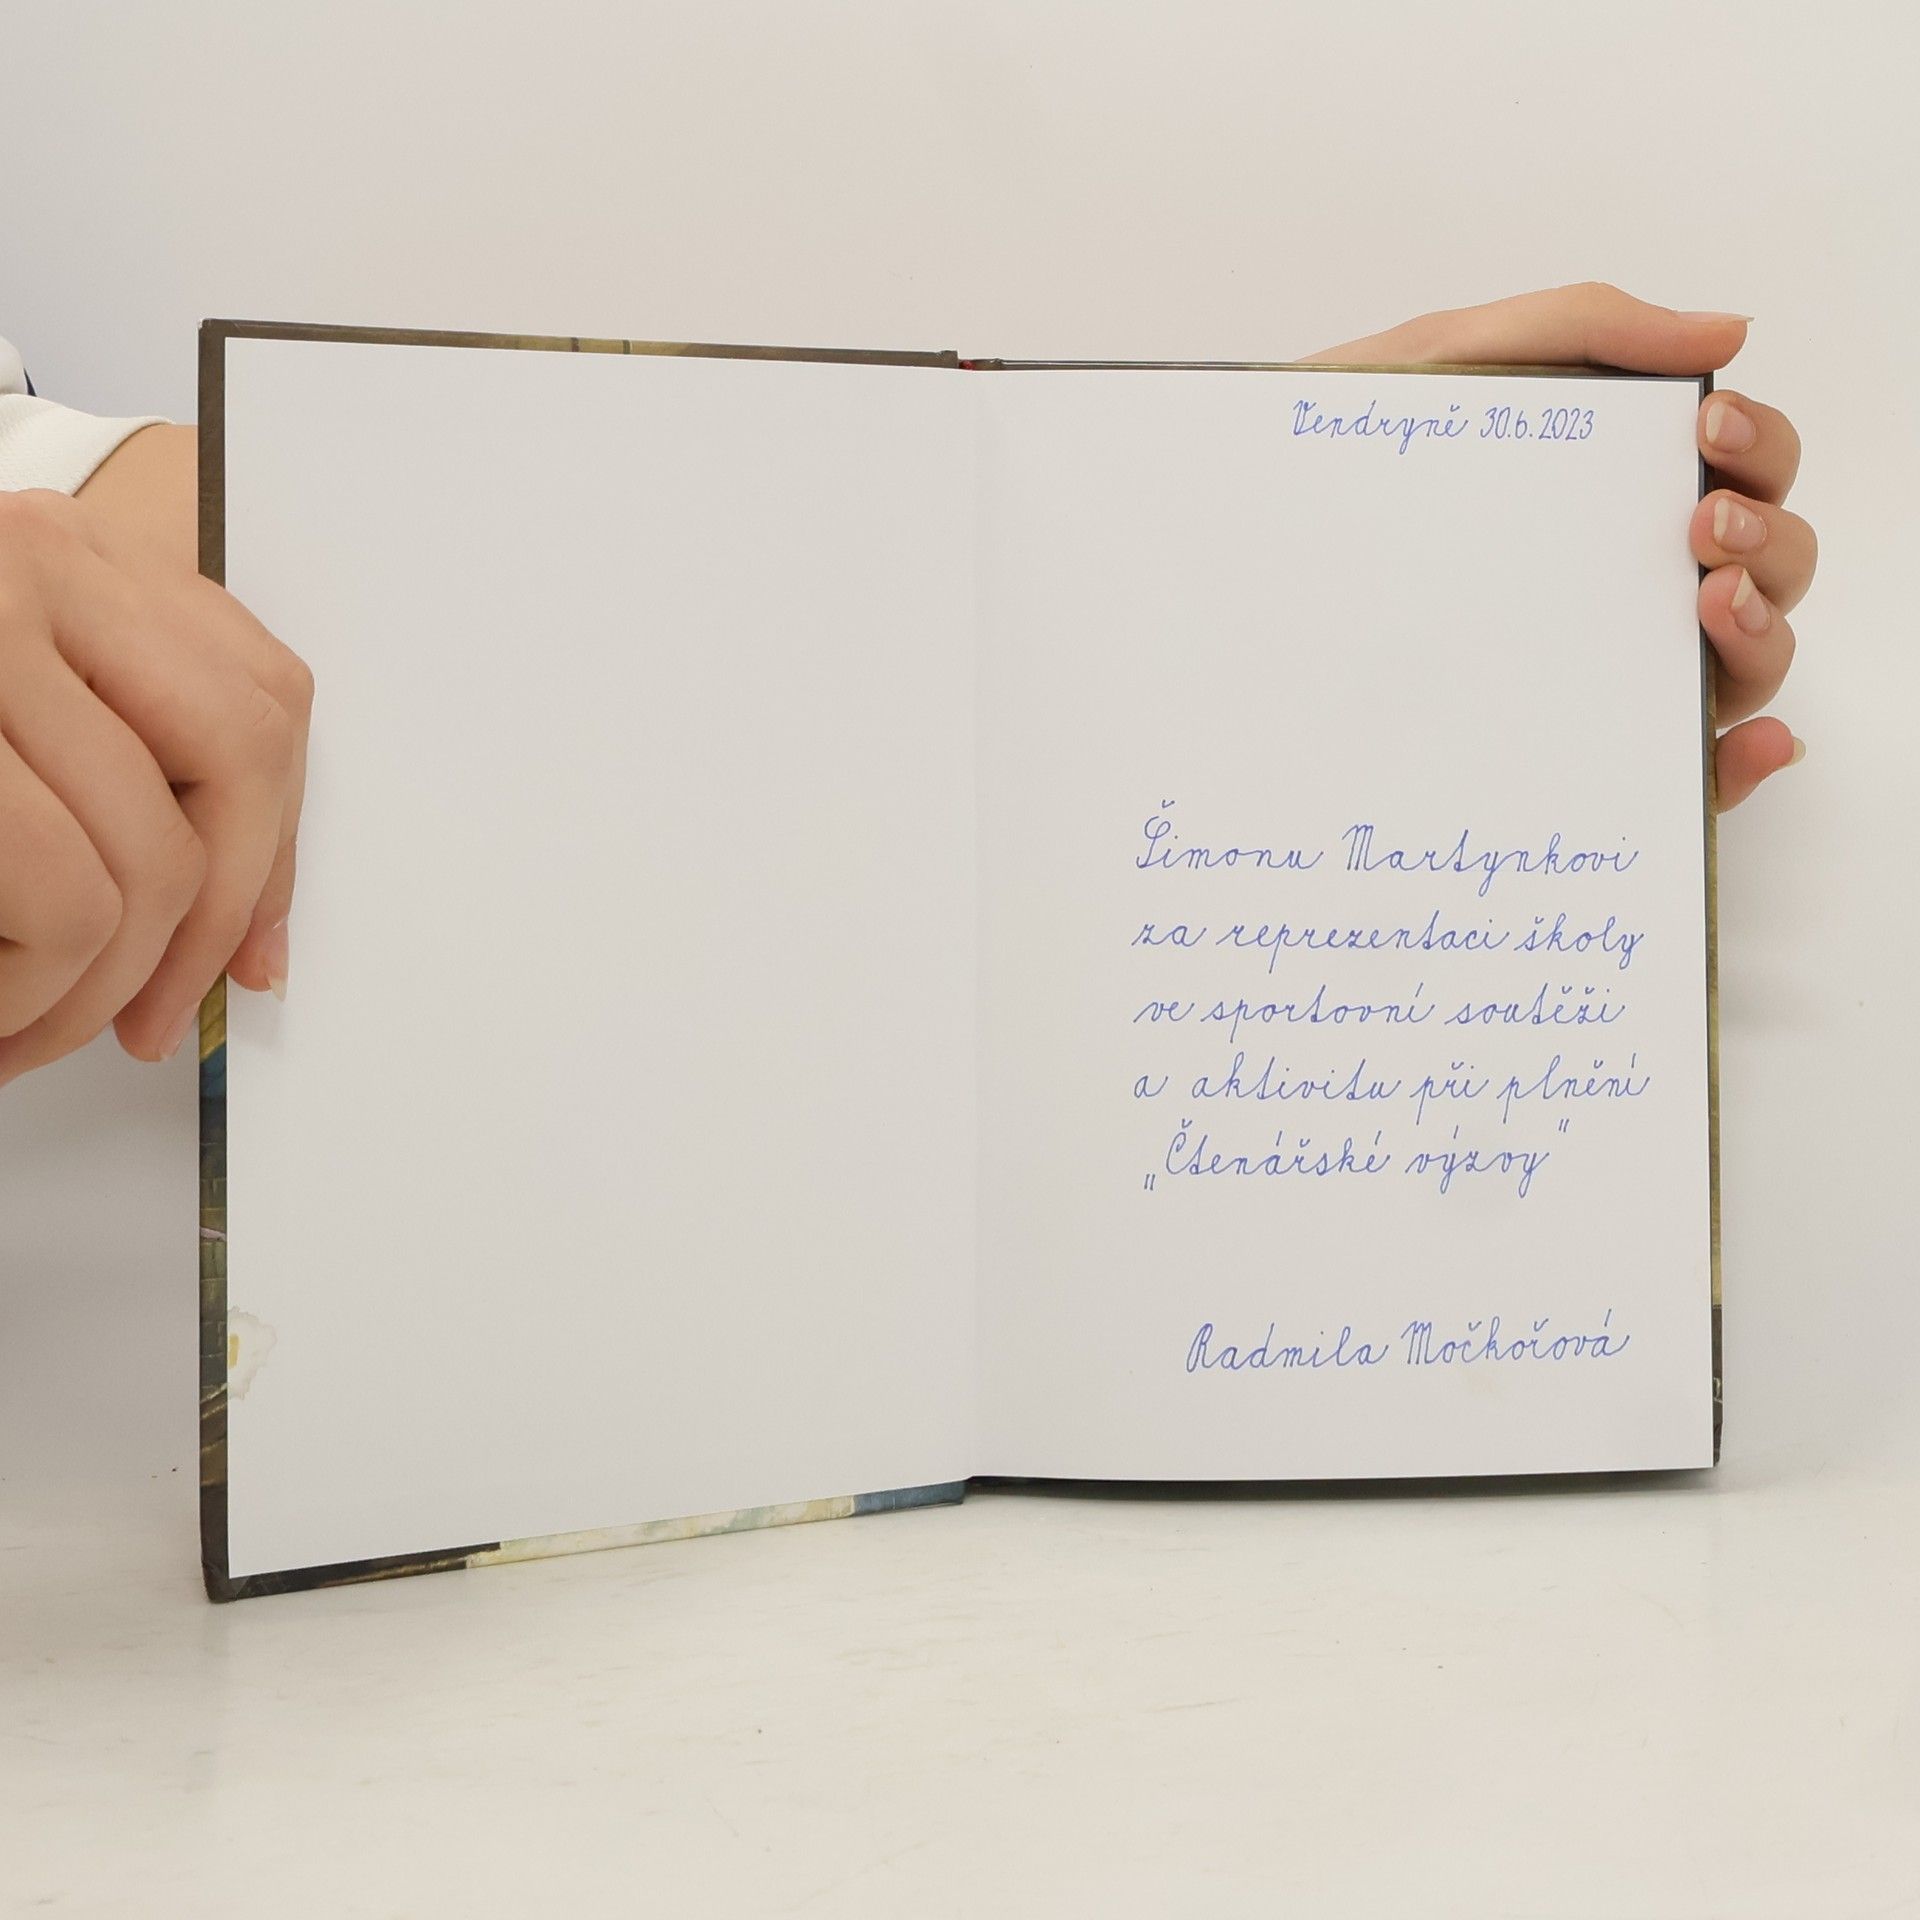 Vendryně 30.6.2023
Šimonu Martynkovi
za reprezentaci školy
ve sportovní soutěži
a aktivitu při plnění
„Čtenářské výzvy"
Radmila Močkořová